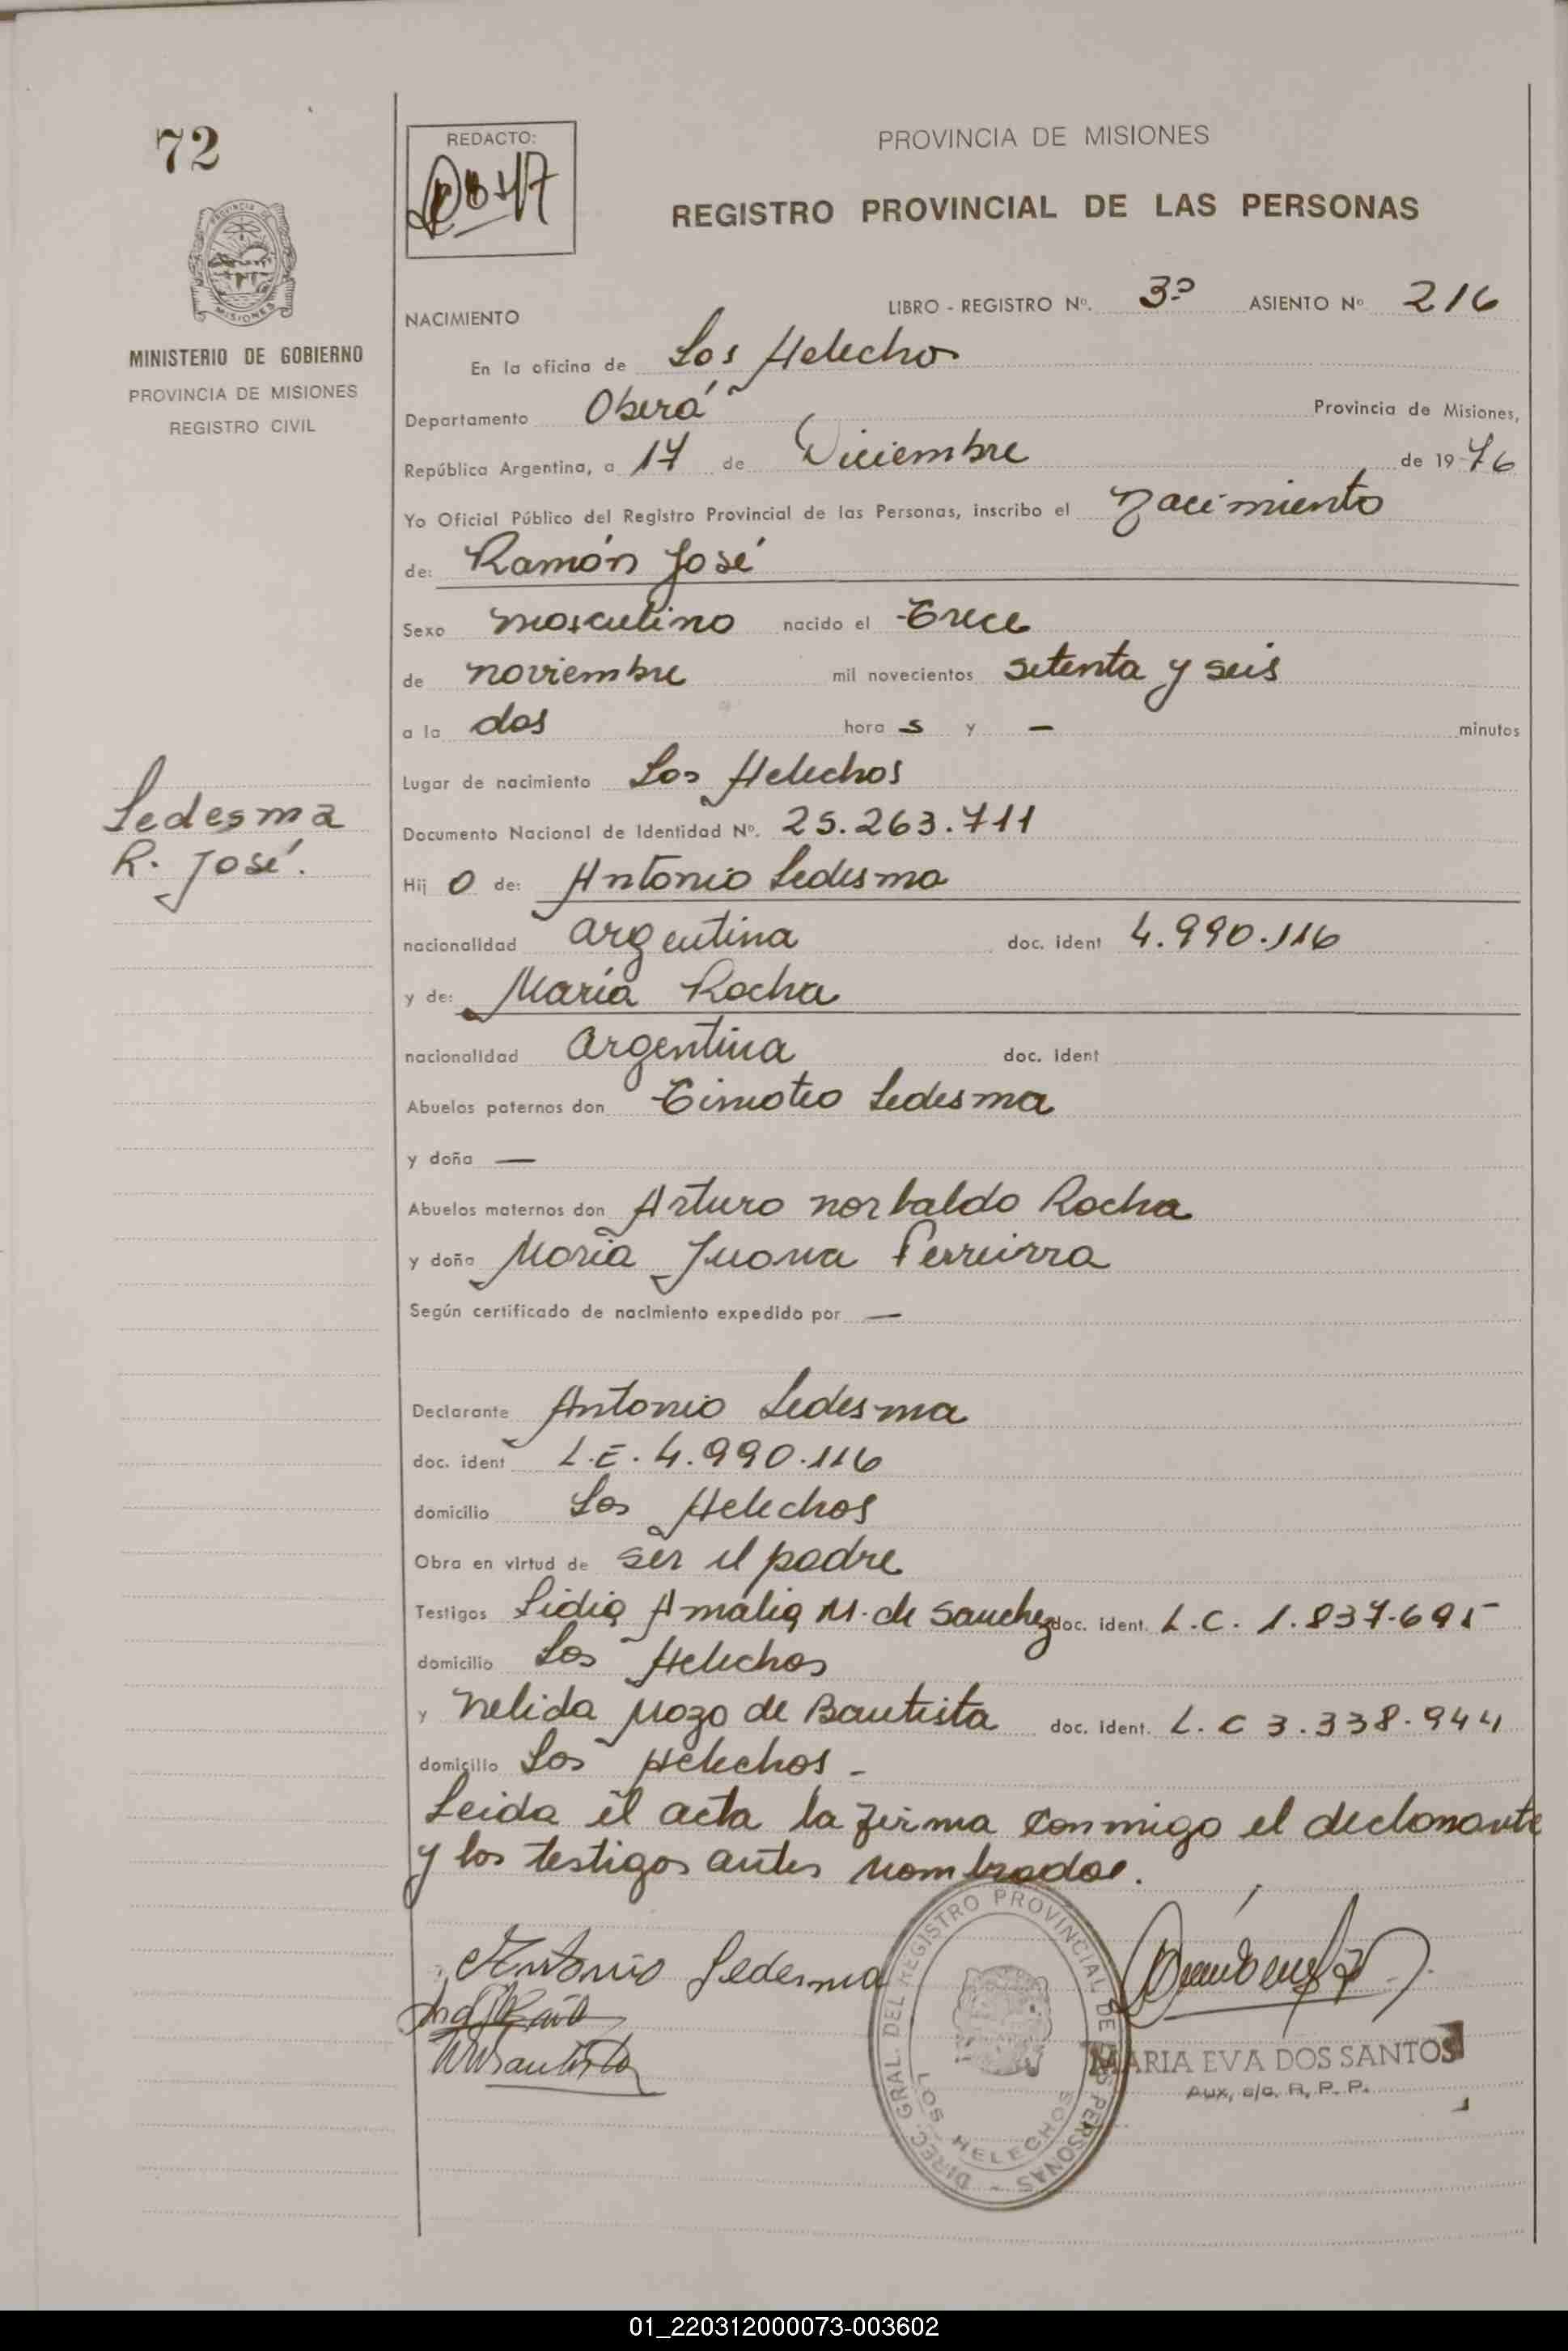 72
PROVINCIA DE MISIONES
MINISTERIO DE GOBIERNO
PROVINCIA DE MISIONES
REGISTRO CIVIL
REDACTO:
PROVINCIA DE MISIONES
REGISTRO PROVINCIAL DE LAS PERSONAS
LIBRO - REGISTRO Nº. 3º ASIENTO Nº 216
NACIMIENTO
En la oficina de Los Helechos
Departamento Oberá Provincia de Misiones,
República Argentina, a 17 de Diciembre de 1976
Yo Oficial Público del Registro Provincial de las Personas, inscribo el Nacimiento
de: Ramón José
Sexo masculino nacido el Trece
de noviembre mil novecientos setenta y seis
a la dos hora s y — minutos
Lugar de nacimiento Los Helechos
Ledesma
R. José.
Documento Nacional de Identidad Nº. 25.263.711
Hij o de: Antonio Ledesma
nacionalidad argentina doc. ident 4.990.116
y de: María Rocha
nacionalidad Argentina doc. ident
Abuelos paternos don Timoteo Ledesma
y doña —
Abuelos maternos don Arturo norbaldo Rocha
y doña Maria Juana Ferreirra
Según certificado de nacimiento expedido por —
Declarante Antonio Ledesma
doc. ident L.E. 4.990.116
domicilio Los Helechos
Obra en virtud de ser el padre
Testigos Lidia Amalia M. de Sanchez doc. ident. L.C. 1.837.695
domicilio Los Helechos
y nelida Mozo de Bautista doc. ident. L.C 3.338.944
domicilio Los Helechos -
Leida el acta la firma conmigo el declarante
y los testigos antes nombrados.
Antonio Ledesma
DIREC. GRAL. DEL REGISTRO PROVINCIAL DE LAS PERSONAS -
LOS HELECHOS
MARIA EVA DOS SANTOS
Aux, a/c. R. P. P.
01_220312000073-003602